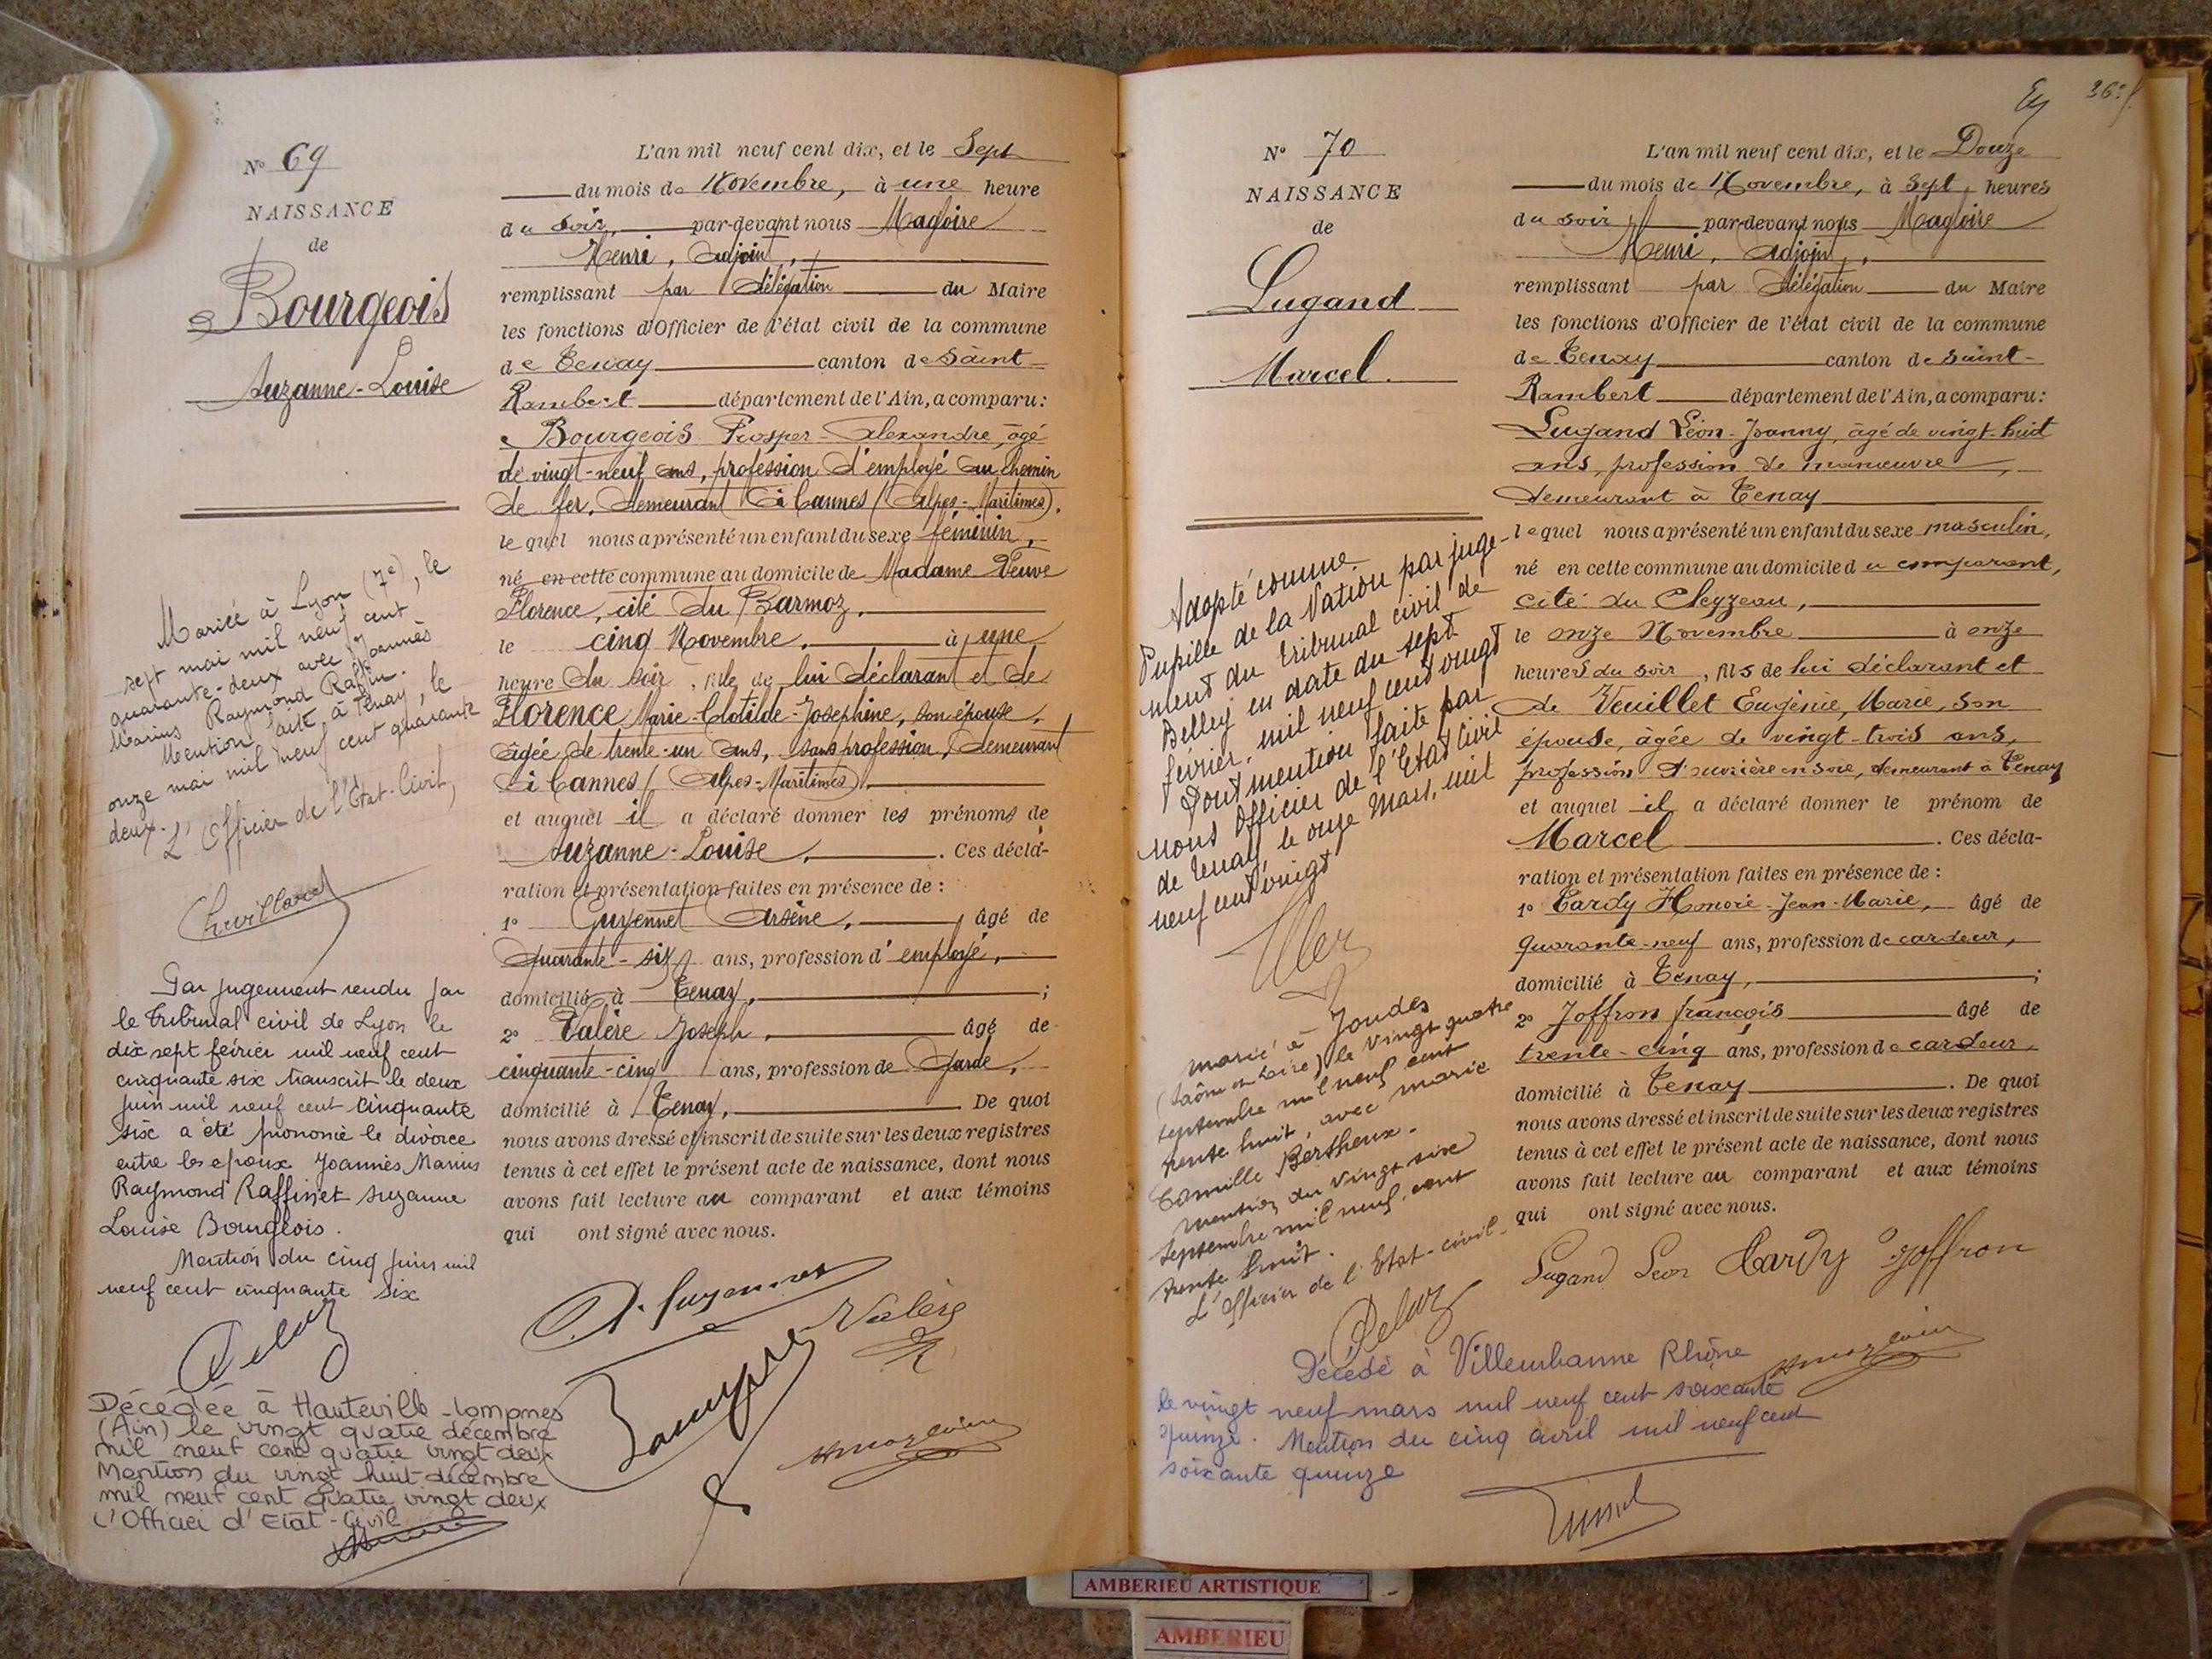 N° 69
NAISSANCE
de
Bourgeois
Suzanne-Louise
Mariée à Lyon (7e), le
sept mai mil neuf cent
quarante-deux avec Joannès
Marius Raymond Raffin.
Mention faite à Tenay, le
onze mai mil neuf cent quarante
deux.
L'Officier de l'Etat-Civil,
Par jugement rendu par
le Tribunal civil de Lyon le
dix sept février mil neuf cent
cinquante six transcrit le deux
juin mil neuf cent cinquante
six a été prononcé le divorce
entre les epoux Joannès Marius
Raymond Raffin et Suzanne
Louise Bourgeois.
Mention du cinq juin mil
neuf cent cinquante six
Décédée à Hauteville-Lompnes
(Ain) le vingt quatre décembre
mil neuf cent quatre vingt deux
Mention du vingt huit décembre
mil neuf cent quatre vingt deux
L'Officier d'Etat-Civil
L'an mil neuf cent dix, et le Sept
du mois de Novembre, à une heure
du soir, par-devant nous Magloire
Henri, Adjoint,
remplissant par délégation du Maire
les fonctions d'Officier de l'état civil de la commune
de Tenay canton de Saint-
Rambert département de l'Ain, a comparu:
Bourgeois Prosper-Alexandre, âgé
de vingt-neuf ans, profession d'employé au chemin
de fer, demeurant à Cannes (Alpes-Maritimes),
lequel nous a présenté un enfant du sexe féminin,
né en cette commune au domicile de Madame Veuve
Florence, cité du Barmoz,
le cinq Novembre, à une
heure du soir, fille de lui déclarant et de
Florence Marie-Clotilde-Josephine, son épouse,
âgée de trente-un ans, sans profession, demeurant
à Cannes (Alpes-Maritimes),
et auquel il a déclaré donner les prénoms de
Suzanne-Louise, . Ces décla-
ration et présentation faites en présence de :
1° Guyennet Arsène, âgé de
quarante-six ans, profession d'employé,
domicilié à Tenay, ;
2° Valère Joseph, âgé de
cinquante-cinq ans, profession de Garde,
domicilié à Tenay, . De quoi
nous avons dressé et inscrit de suite sur les deux registres
tenus à cet effet le présent acte de naissance, dont nous
avons fait lecture au comparant et aux témoins
qui ont signé avec nous.
Valère
Ey 36
N° 70
NAISSANCE
de
Lugand
Marcel.
Adopté comme
Pupille de la Nation par juge-
ment du Tribunal civil de
Belley en date du sept
février, mil neuf cent vingt
Dont mention faite par
nous Officier de l'Etat Civil
de Tenay, le onze Mars, mil
neuf cent vingt
marié à Joudes
(Saône et Loire) le vingt quatre
septembre mil neuf cent
trente huit, avec Marie
Camille Bertheux.
Mention du vingt six
septembre mil neuf cent
trente huit.
L'officier de l'Etat-civil.
Décédé à Villeurbanne Rhône
le vingt neuf mars mil neuf cent soixante
quinze. Mention du cinq avril mil neuf cent
soixante quinze
L'an mil neuf cent dix, et le Douze
du mois de Novembre, à sept heures
du soir par-devant nous Magloire
Henri, Adjoint,
remplissant par délégation du Maire
les fonctions d'Officier de l'état civil de la commune
de Tenay canton de saint-
Rambert département de l'Ain, a comparu:
Lugand Léon-Joanny, âgé de vingt-huit
ans, profession de manœuvre,
demeurant à Tenay
lequel nous a présenté un enfant du sexe masculin,
né en cette commune au domicile du comparant,
cité du Cleyzeau,
le onze Novembre à onze
heures du soir, fils de lui déclarant et
de Veuillet Eugénie, Marie, son
épouse, âgée de vingt-trois ans,
profession d'ouvrière en soie, demeurant à Tenay
et auquel il a déclaré donner le prénom de
Marcel . Ces décla-
ration et présentation faites en présence de :
1° Tardy Honoré-Jean-Marie, âgé de
quarante-neuf ans, profession de cardeur,
domicilié à Tenay, ;
2° Joffron françois âgé de
trente-cinq ans, profession de cardeur,
domicilié à Tenay . De quoi
nous avons dressé et inscrit de suite sur les deux registres
tenus à cet effet le présent acte de naissance, dont nous
avons fait lecture au comparant et aux témoins
qui ont signé avec nous.
Lugand Léon Tardy Joffron
AMBERIEU ARTISTIQUE
AMBERIEU